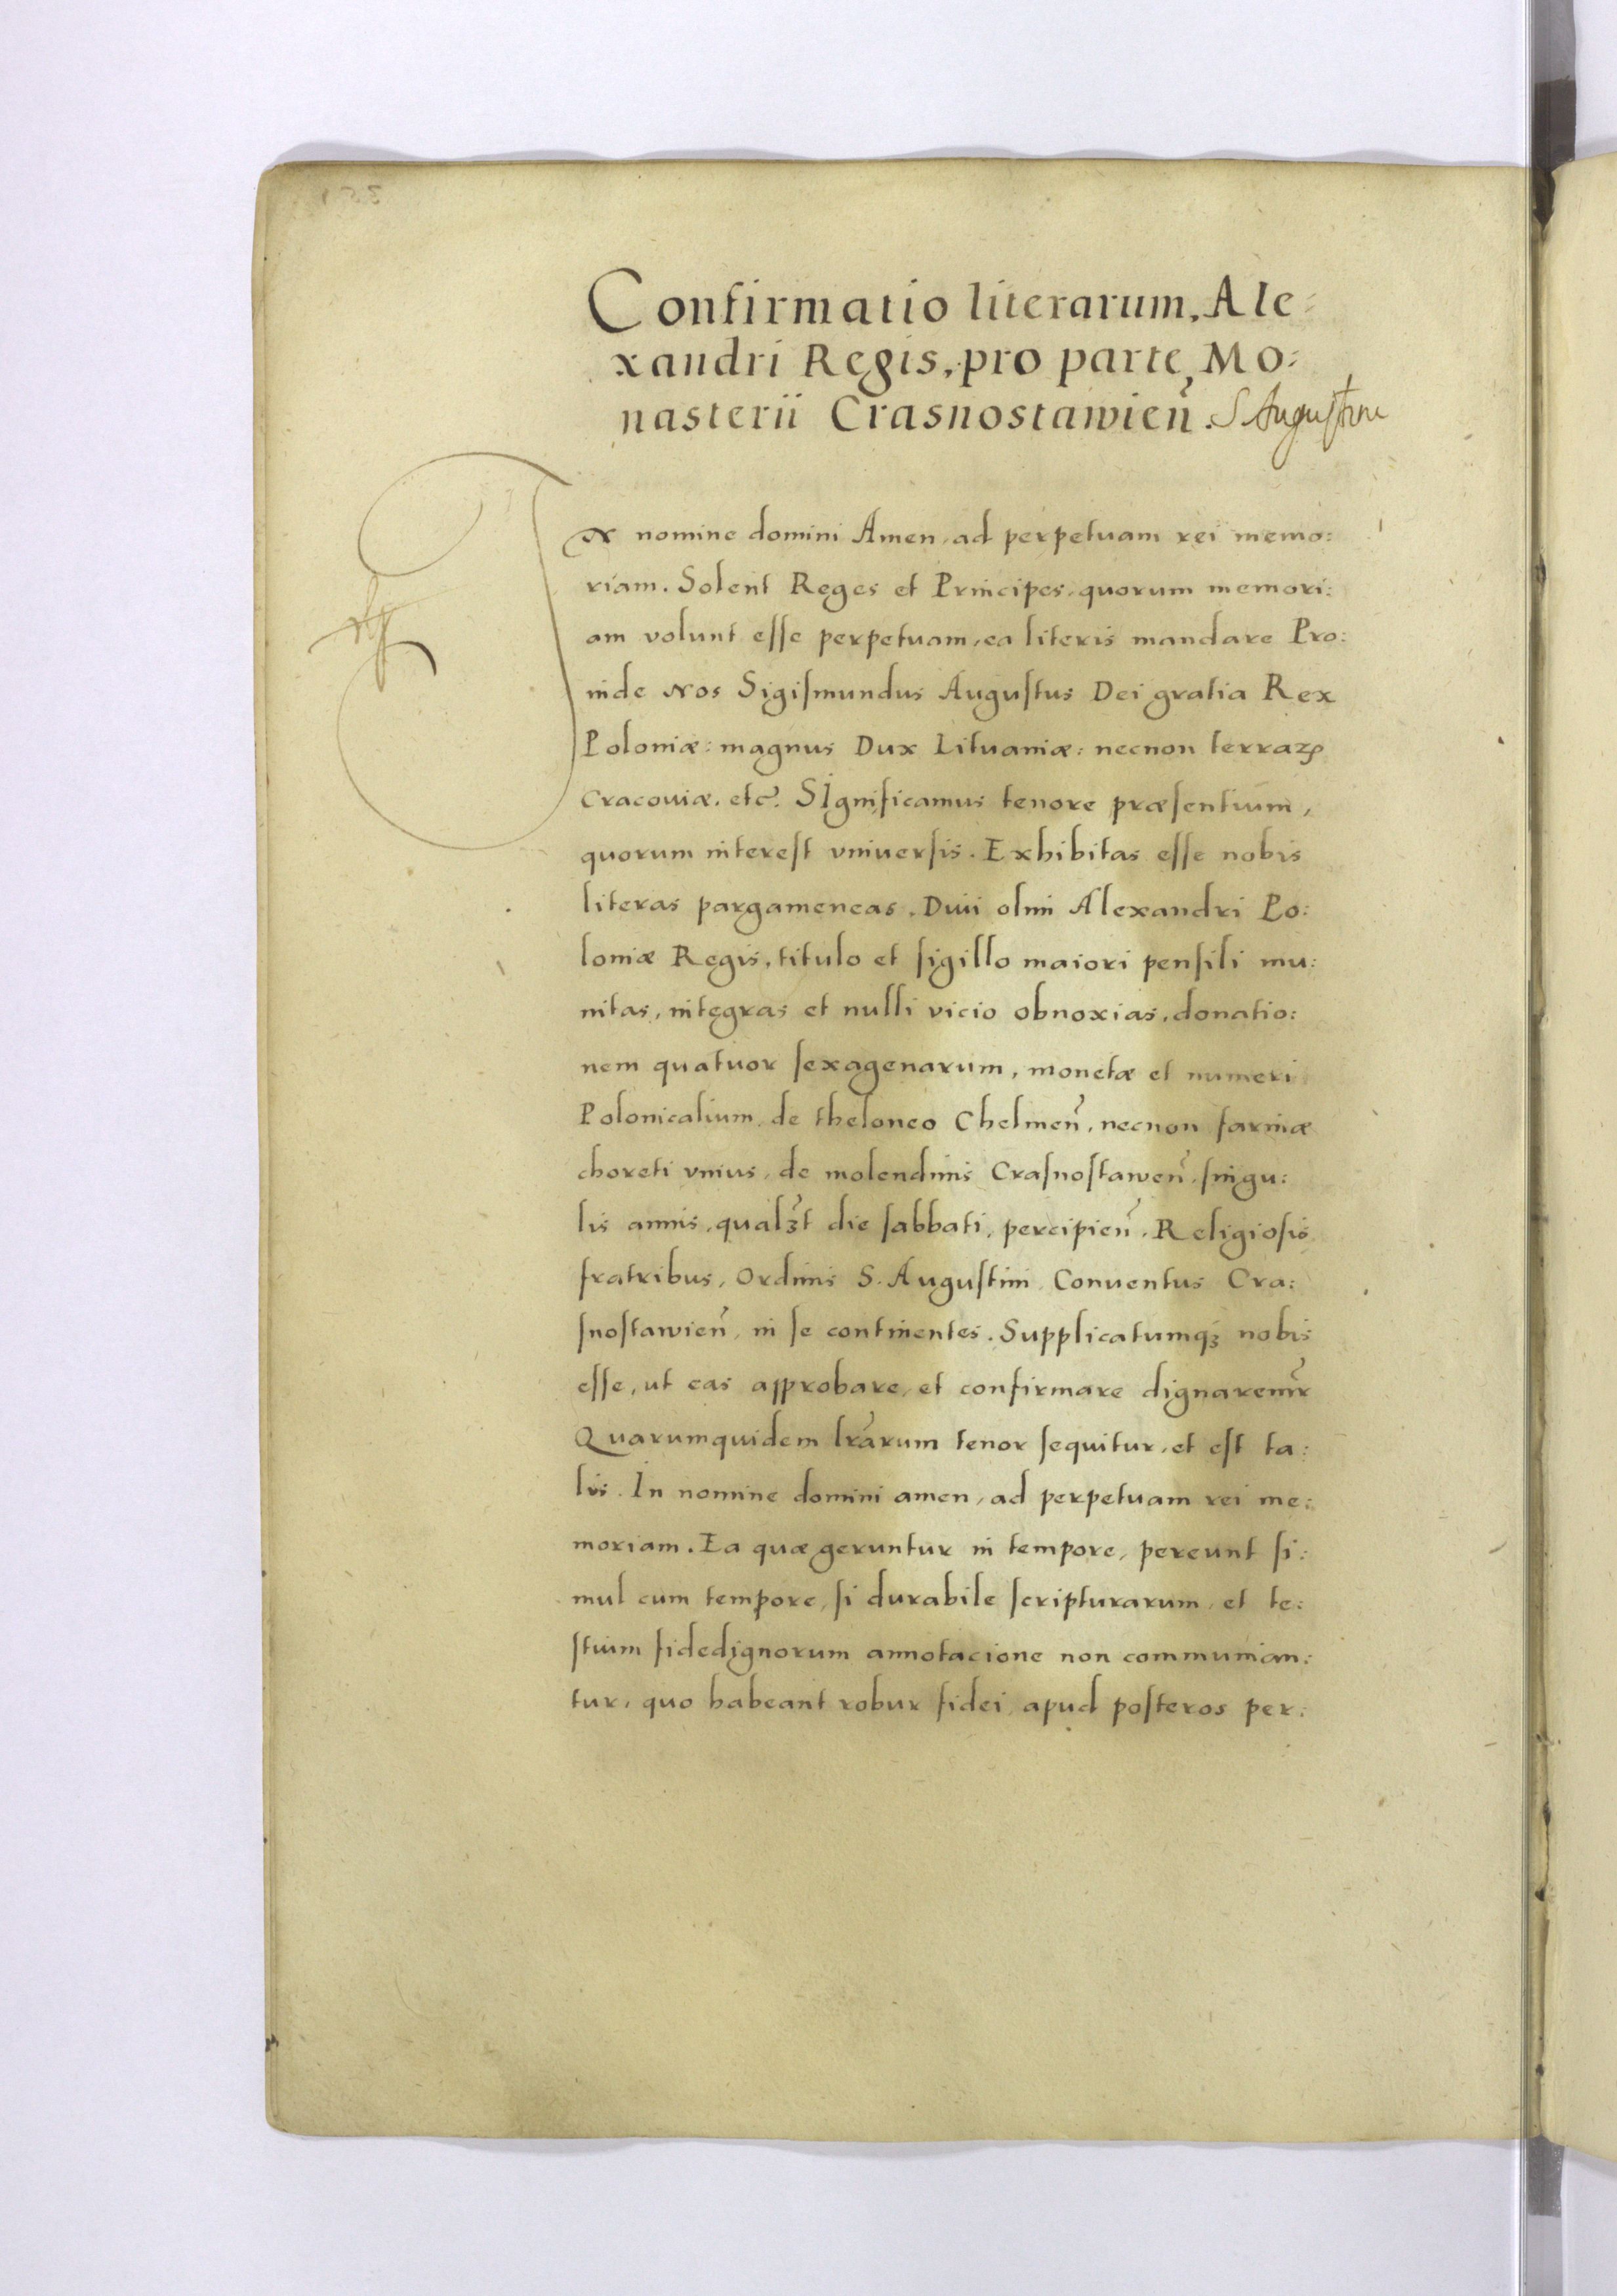 Confirmatio literarum, Ale:
xandri Regis, pro parte, Mo:
nasterii Crasnostawien̄. S Augustini
IN nomine domini Amen, ad perpetuam rei memo:
riam. Solent Reges et Principes, quorum memori:
am volunt esse perpetuam, ea literis mandare Pro:
inde Nos Sigismundus Augustus Dei gratia Rex
Poloniæ: magnus Dux Lituaniæ: necnon terraꝝ
Cracouiæ. etc̃. SIgnificamus tenore præsentium,
quorum interest vniuersis. Exhibitas esse nobis
literas pargameneas. Diui olim Alexandri Po:
loniæ Regis, titulo et sigillo maiori pensili mu:
nitas, integras et nulli vicio obnoxias, donatio:
nem quatuor sexagenarum, monetæ et numeri
Polonicalium, de theloneo Chelmen̄, necnon farinæ
choreti vnius, de molendinis Crasnostawen̄, singu:
lis annis, qualꝫt die sabbati, percipien̄. Religiosis
fratribus, Ordinis S. Augustini Conuentus Cra:
snostawien̄, in se continentes. Supplicatumqꝫ nobis
esse, ut eas approbare, et confirmare dignaremr̃
Quarumquidem lrãrum tenor sequitur, et est ta:
lis. In nomine domini amen, ad perpetuam rei me:
moriam. Ea quæ geruntur in tempore, pereunt si:
mul cum tempore, si durabile scripturarum, et te:
stium fidedignorum annotacione non communian:
tur, quo habeant robur fidei, apud posteros per: